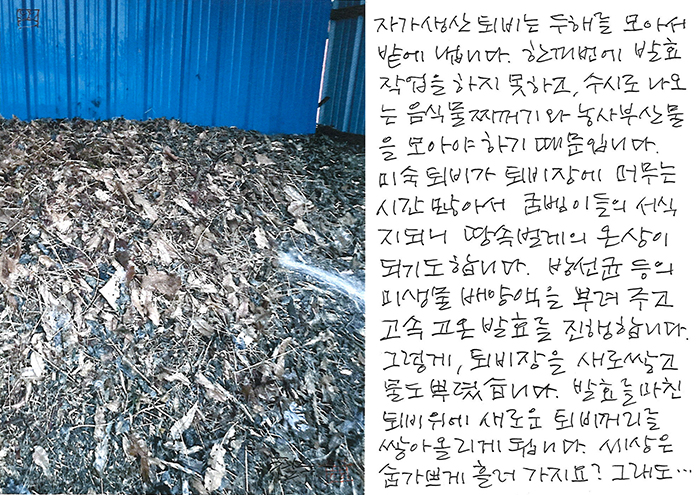 자가생산 퇴비는 두해를 모아서
밭에 냅니다. 한꺼번에 발효
작업을 하지 못하고, 수시로 나오
는 음식물찌꺼기와 농사부산물
을 모아야 하기 때문입니다.
미숙 퇴비가 퇴비장에 머무는
시간 많아서 굼벵이들의 서식
지되니 땅속벌레의 온상이
되기도합니다. 방선균 등의
미생물 배양액을 뿌려 주고
고속 고온 발효를 진행합니다.
그렇게, 퇴비장을 새로쌓고
물도 뿌렸습니다. 발효를마친
퇴비위에 새로운 퇴비꺼리를
쌓아올리게 됩니다. 세상은
숨가쁘게 흘러 가지요? 그래도…